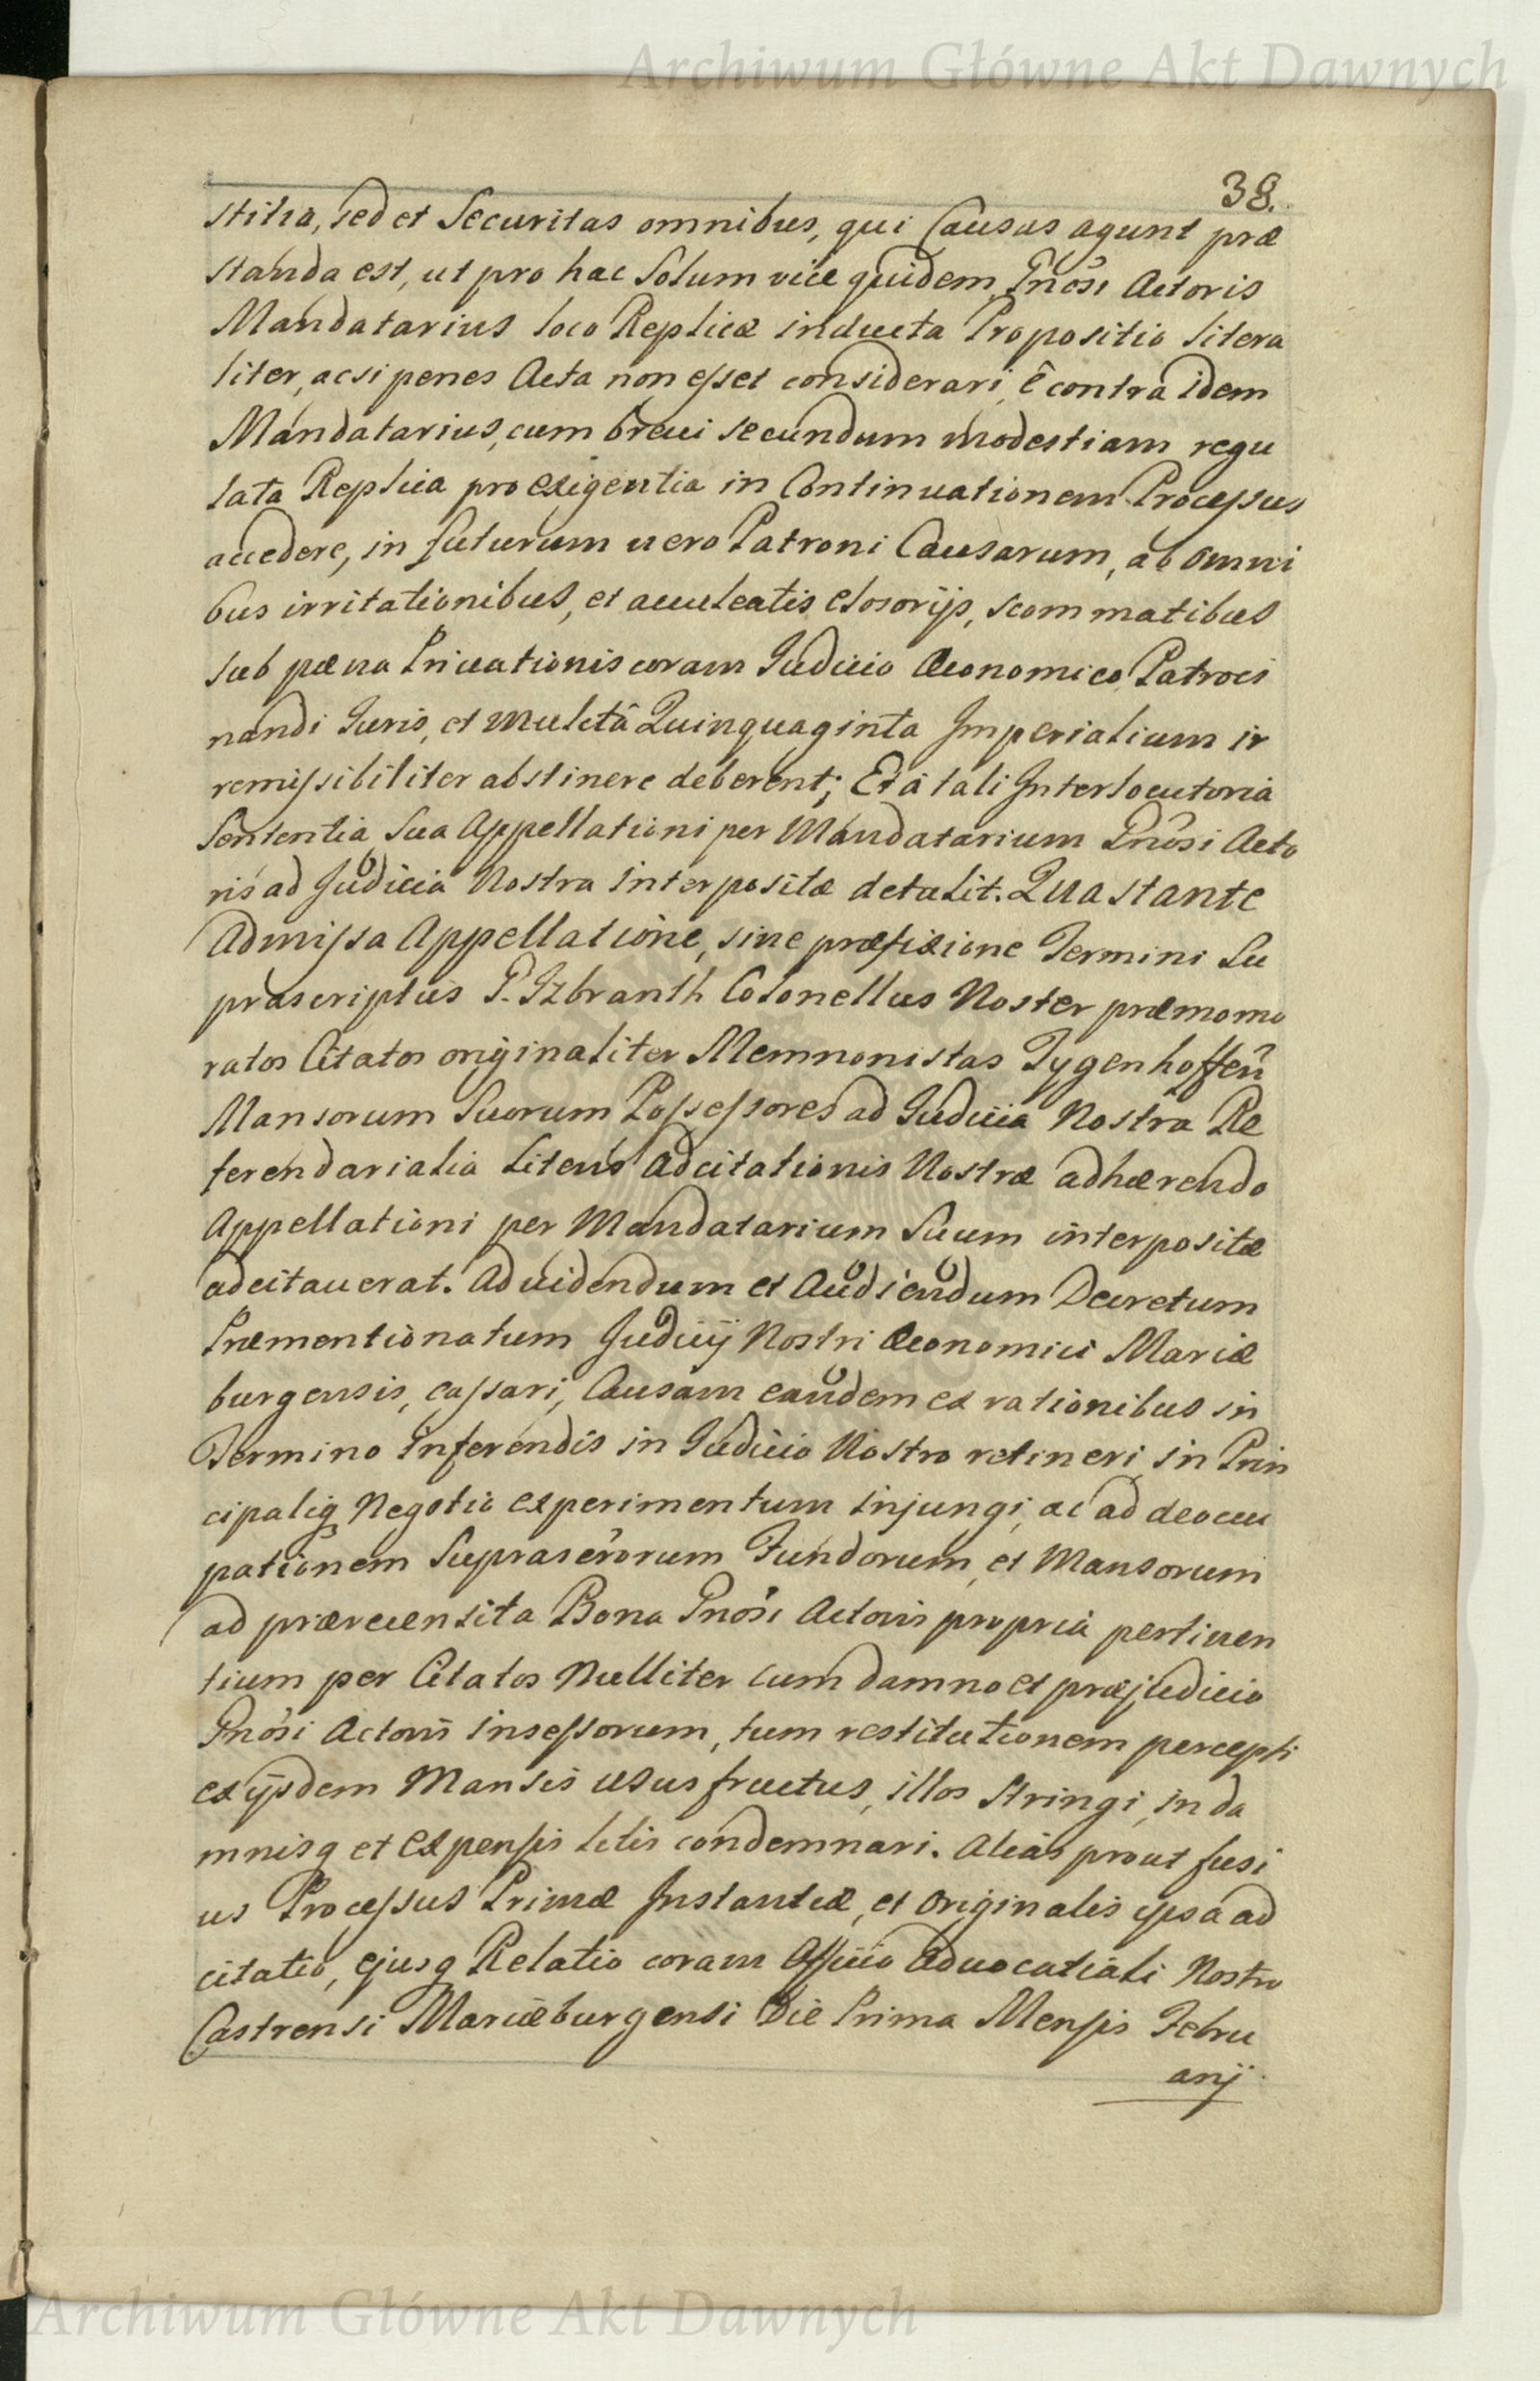 Archiwum Główne Akt Dawnych
38.
stitia, sed et Securitas omnibus, qui Causas agunt præ
standa est, ut pro hac Solum vice quidem, Gnosi Actoris
Mandatarius loco Replicæ inducta Propositio litera
liter, acsi penes Acta non esset considerari, è contra idem
Mandatarius, cum brevi secundum modestiam regu
lata Replica pro exigentia in Continuationem Processus
accedere, in futurum vero Patroni Causarum, ab omni
bus irritationibus, et aculeatis, scommatibus
sub pæna Privationis coram Judicio Œconomico Patroci
nandi Juris, et mulctâ Quinquaginta Imperialium ir
remissibiliter abstinere deberent; Et à tali Interlocutoria
Sententia Sua Appellationi per Mandatarium Gnosi Acto
ris ad Judicia Nostra interpositæ detulit. Qua stante
Admissa Appellatione, sine præfixione Termini Su
prascriptus G. Izbranth Colonellus Noster præmemo
ratos Citatos originaliter Memnonistas Tygenhoffen
Mansorum Suorum Possessores ad Judicia Nostra Re
ferendarialia Literis Adcitationis Nostræ adhærendo
Appellationi per Mandatarium Suum interpositæ
adcitaverat. Ad videndum et Audiendum Decretum
Præmentionatum Judicij Nostri Œconomici Mariæ
burgensis, cassari, Causam eandem ex rationibus in
Termino inferendis in Judicio Nostro retineri, in Prin
cipaliq Negotio experimentum injungi, ac ad deoccu
pationem Suprascrorum Fundorum, et Mansorum
ad præreensita Bona Gnosi Actoris propria pertinen
tium per Citatos Nulliter cum damno et præjudicio
Gnosi Actoris insessorum, tum restitutionem percepti
ex ijsdem Mansis ususfructus, illos stringi, in da
mnisq et expensis litis condemnari. Alias prout fusi
us Processus Primæ Instantiæ, et originalis ipsa ad
citatio, ejusq Relatio coram Officio Advocatiali Nostro
Castrensi Mariæburgensi Die Prima Mensis Febru
arij
Archiwum Główne Akt Dawnych